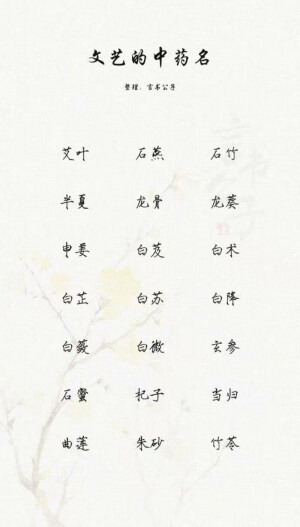 文艺的中药名
整理：言书公子
艾叶 石燕 石竹
半夏 龙骨 龙葵
申姜 白芨 白术
白芷 白苏 白降
白蔹 白微 玄参
石蟹 杞子 当归
曲莲 朱砂 竹苓